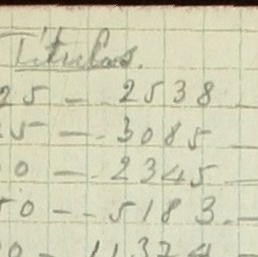 Titulos.
25 - 2538 -
25 - 3085 -
0 - 2345 -
50 - - 5183. -
00 - 11374 -